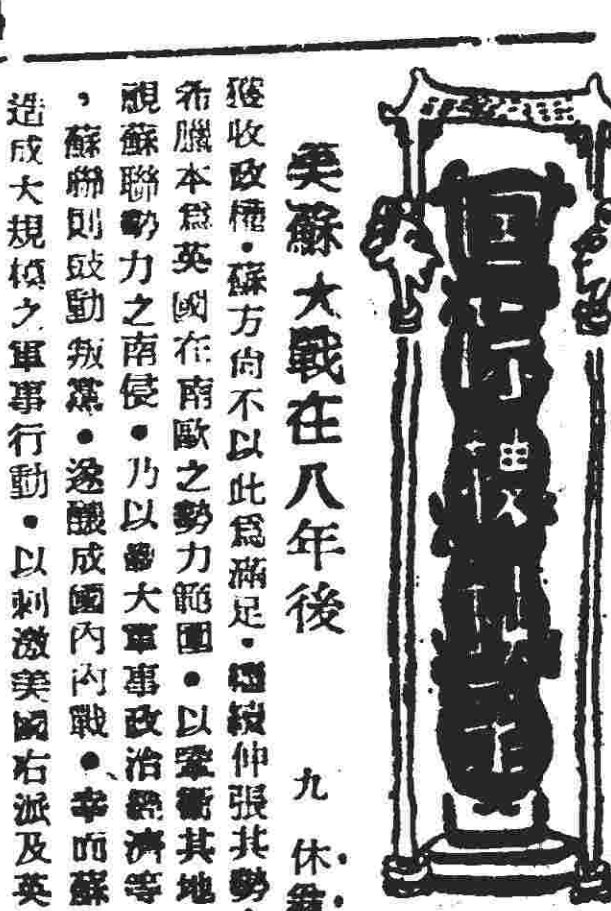 美蘇大戰在八年後
九 休
獲收政權・蘇方尙不以此爲滿足・繼續伸張其勢
希臘本爲英國在南歐之勢力範圍・以鞏衞其地
視蘇聯勢力之南侵・乃以 大軍事政治經濟等
，蘇聯則鼓動叛黨・遂釀成國內內戰・幸而蘇
造成大規模之軍事行動・以刺激美國右派及英